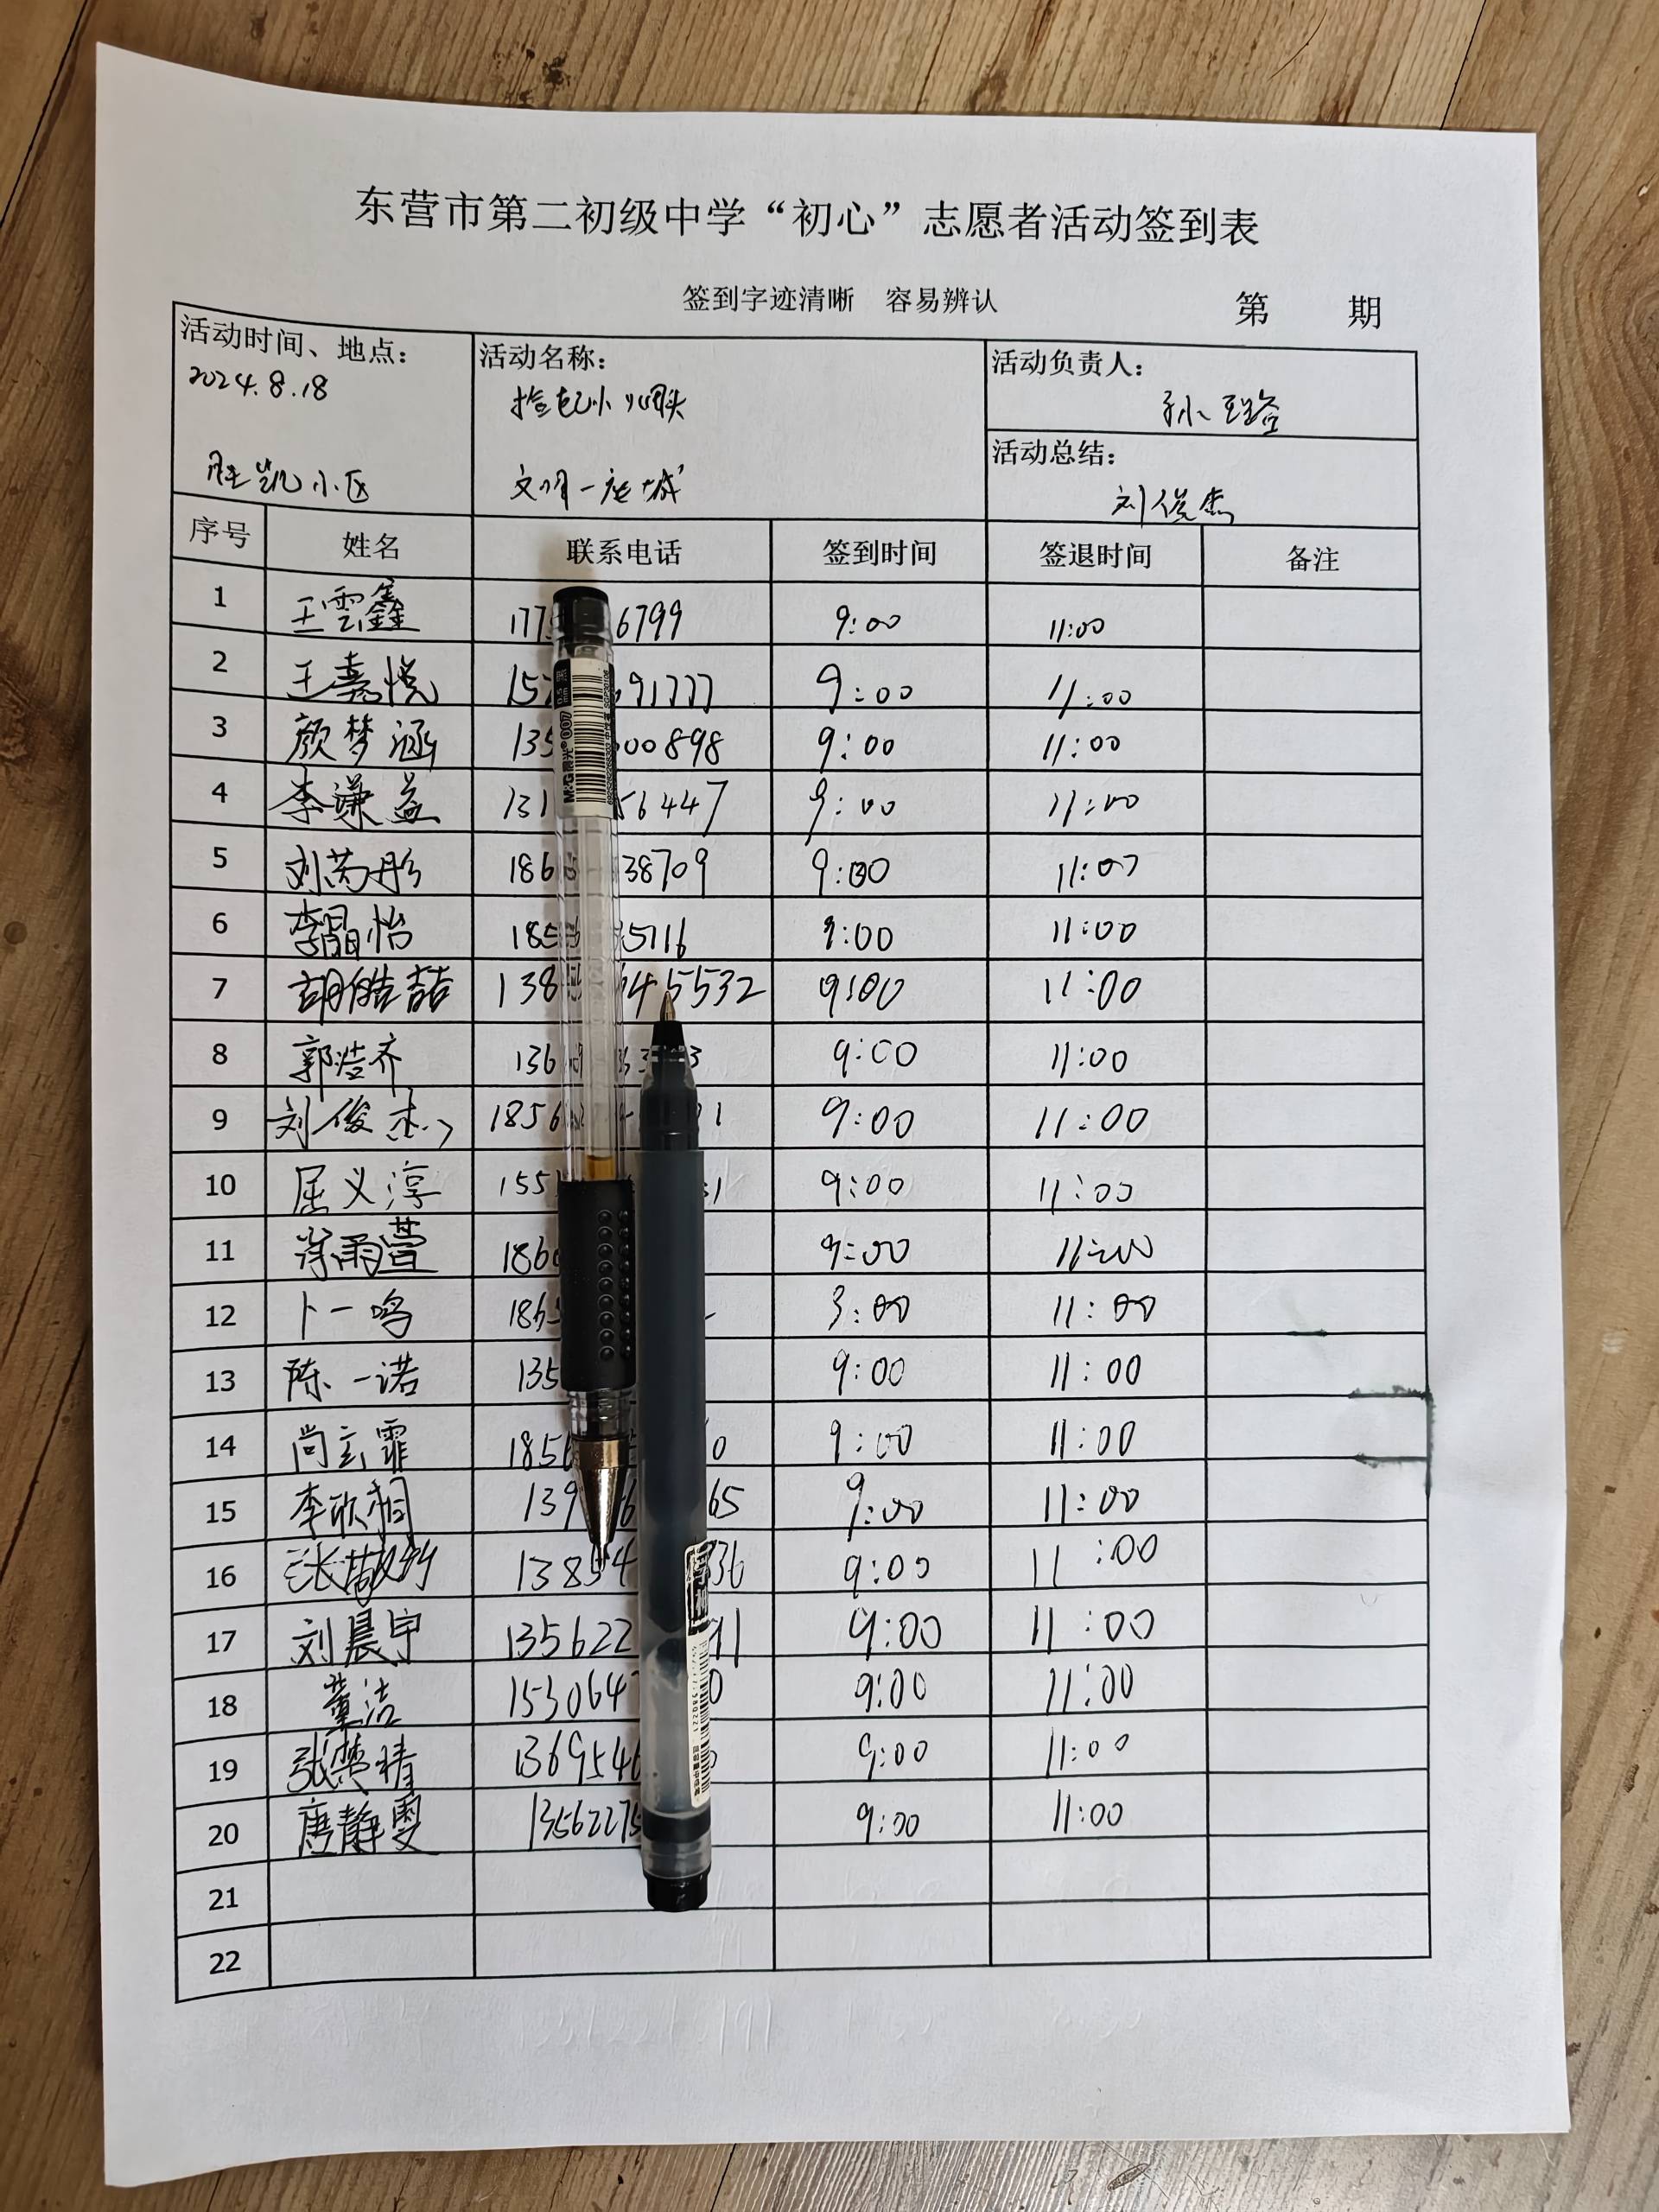 东营市第二初级中学“初心”志愿者活动签到表
签到字迹清晰 容易辨认 第 期
活动时间、地点： 活动名称： 活动负责人：
2024.8.18 捡起小烟头 孙
胜凯小区 文明一座城 活动总结：
刘俊杰
序号 姓名 联系电话 签到时间 签退时间 备注
1 王雲鑫 177 6799 9:00 11:00
2 王嘉悦 15 91777 9:00 11:00
3 颜梦涵 135 00898 9:00 11:00
4 李谦益 131 56447 9:00 11:00
5 刘芮彤 186 38709 9:00 11:00
6 李晶怡 185 5716 9:00 11:00
7 胡皓喆 138 645532 9:00 11:00
8 郭浩齐 136 3 9:00 11:00
9 刘俊杰 1856 1 9:00 11:00
10 屈义淳 155 1 9:00 11:00
11 雨萱 186 9:00 11:00
12 卜一鸣 186 9:00 11:00
13 陈一诺 135 9:00 11:00
14 尚玄霏 1856 0 9:00 11:00
15 李欣桐 139 6 65 9:00 11:00
16 张 13854 36 9:00 11:00
17 刘晨宇 135622 91 9:00 11:00
18 董洁 153064 0 9:00 11:00
19 张楚晴 1369546 9:00 11:00
20 唐静雯 13562275 9:00 11:00
21
22
M&G晨光 007 0.5mm 黑